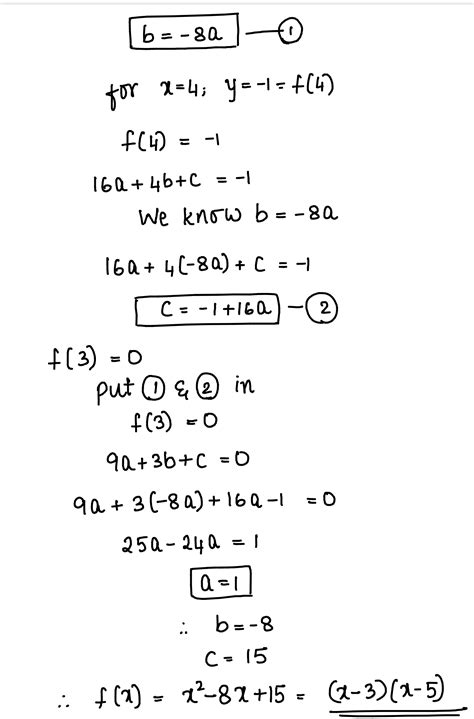 b = -8a — ①
for x=4; y=-1=f(4)
f(4) = -1
16a + 4b+c = -1
We know b = -8a
16a + 4(-8a) + c = -1
c = -1+16a — ②
f(3) = 0
put ① & ② in
f(3) = 0
9a+3b+c = 0
9a + 3(-8a) + 16a -1 = 0
25a - 24a = 1
a = 1
∴ b = -8
c = 15
∴ f(x) = x²-8x+15 = (x-3)(x-5)